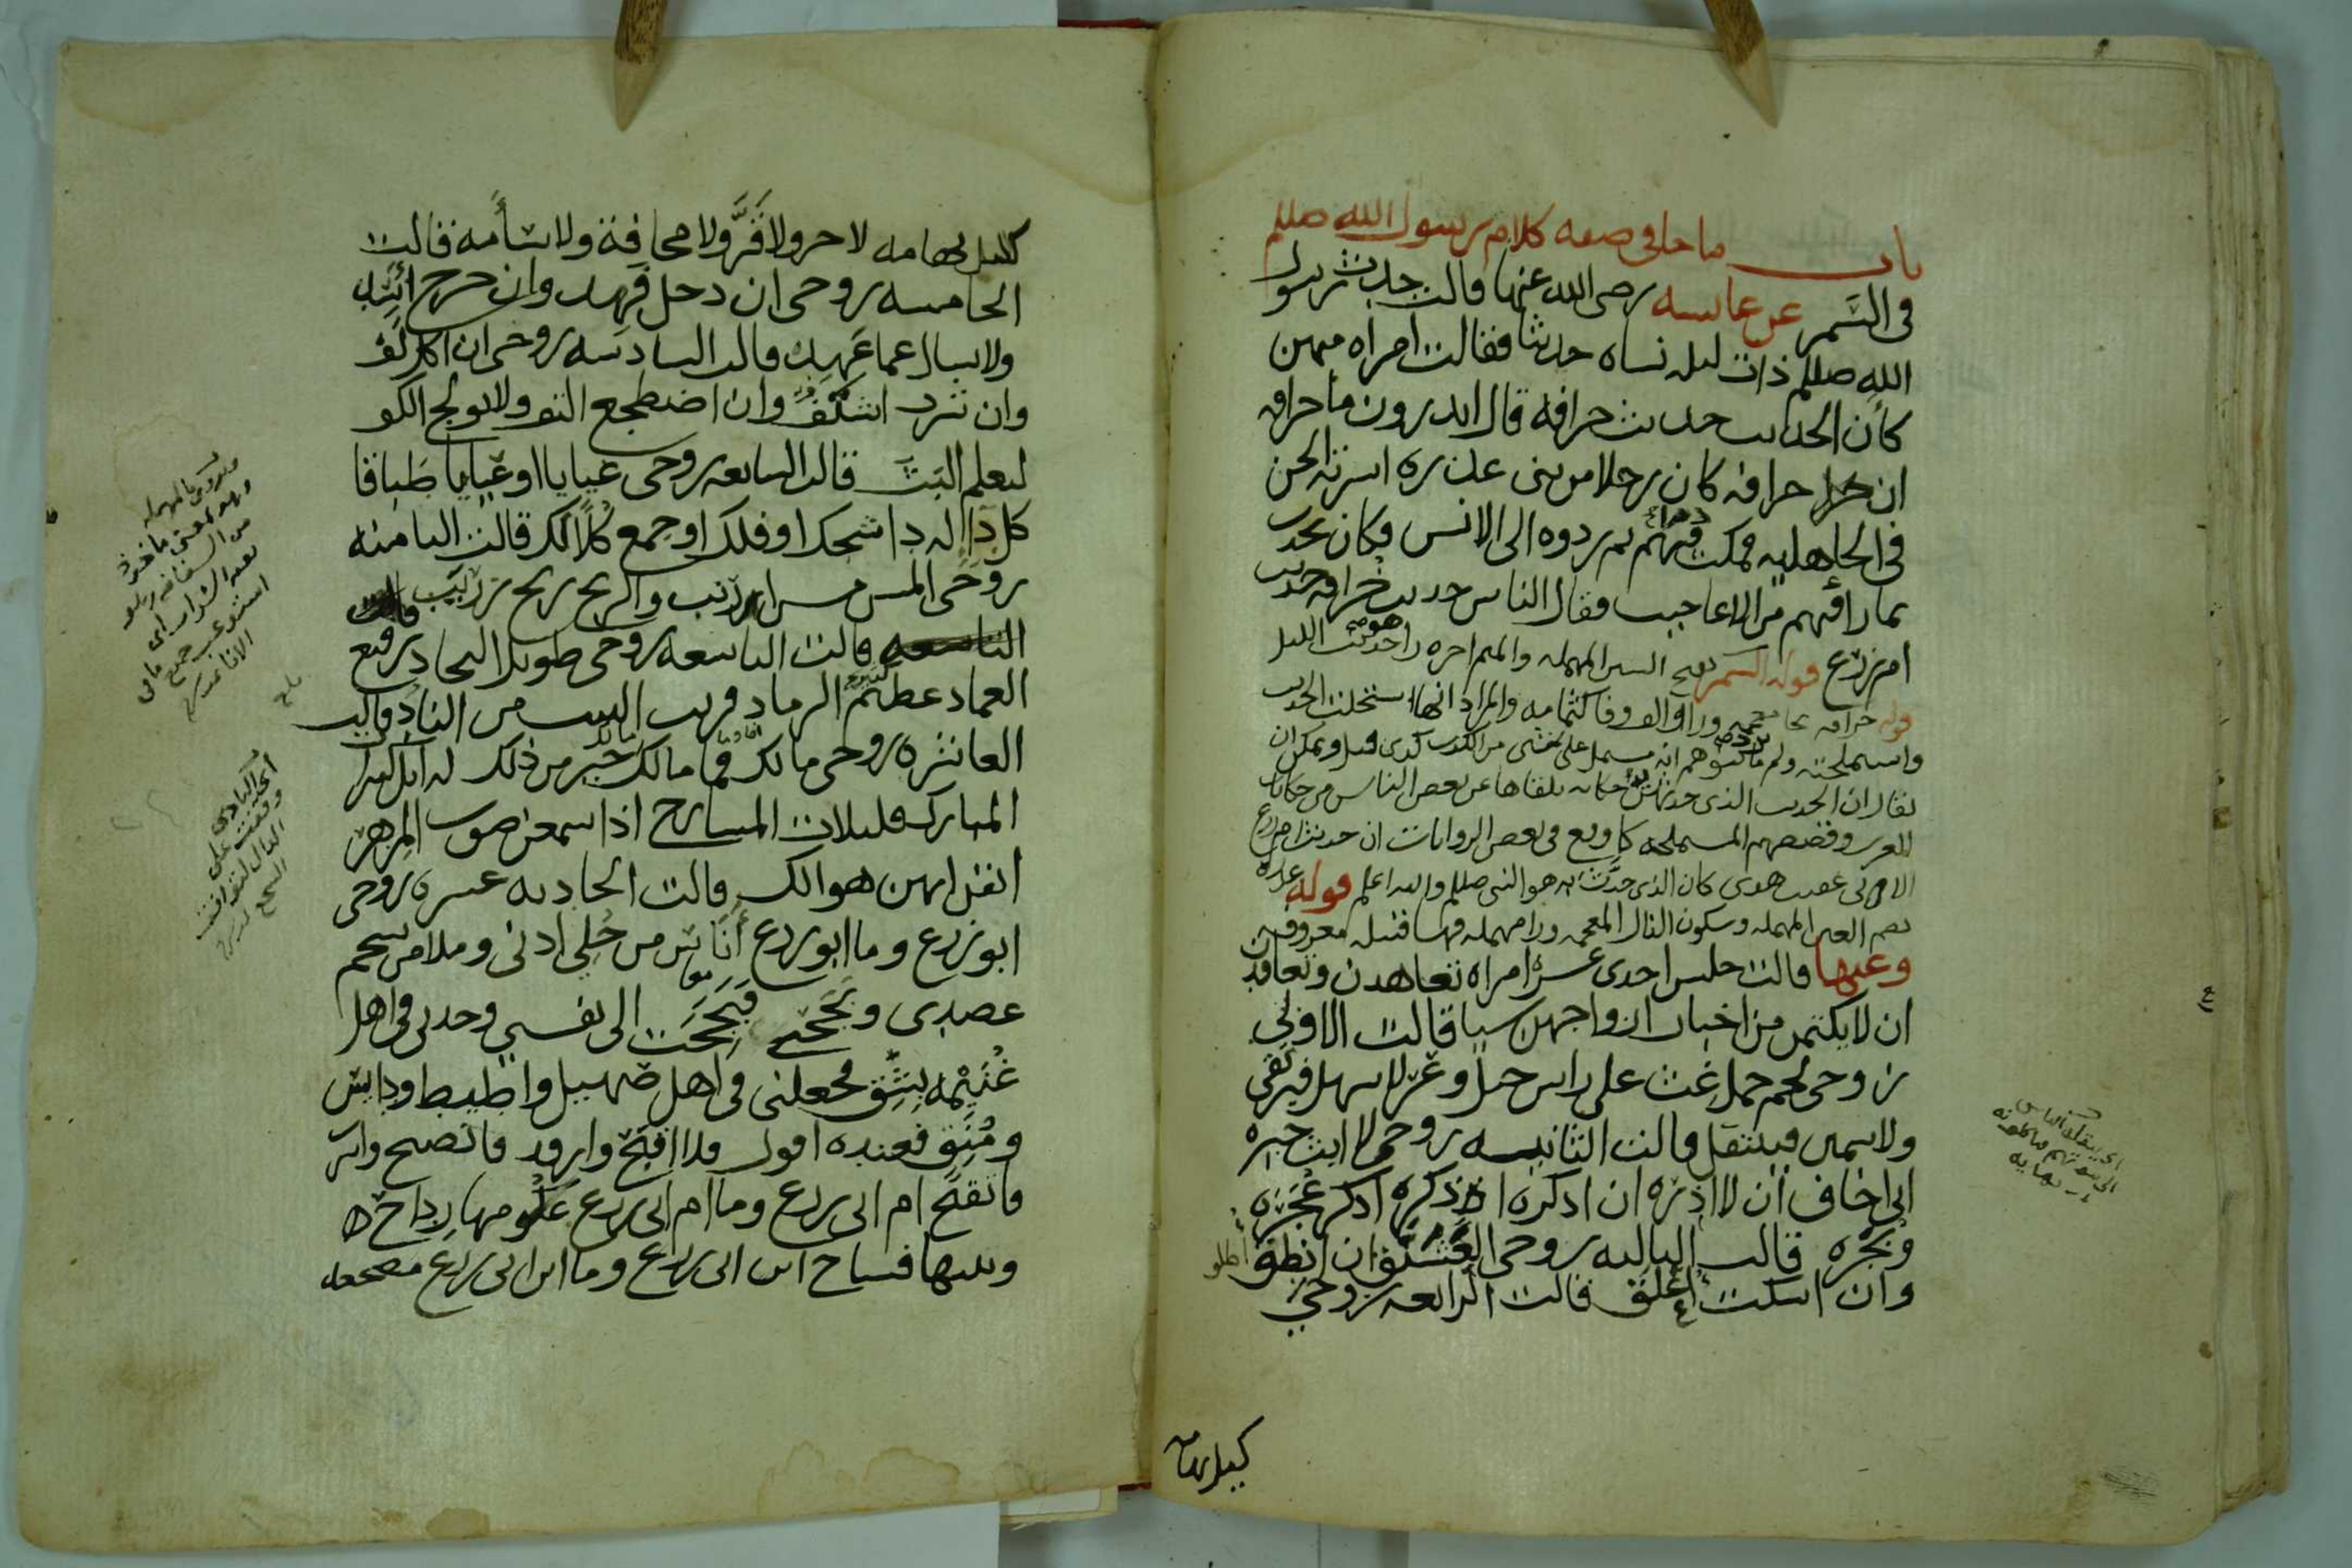 باب ما جا في صفه كلام رسول الله صللم
في السَّمر عن عايسه رضي الله عنها قالت حدث رسول
الله صللم ذات ليله نساه حديثا فقالت امراه منهن
كأن الحديث حديث خرافه قال اتدرون ما خرافه
ان خرافه كان رجلا من بني عذره اسرته الجن
في الجاهليه فمكث فيهم دهرا ثم ردوه الى الانس فكان يحدث
بما راى فيهم من الاعاجيب فقال الناس حديث خُرافه حديث
ام زرع قوله السمر بفتح السين المهمله والميم اخره را هو حديث الليل
قوله خرافه بخا معجمه ورا والف وفا كثمامه والمراد انها استحلت الحديث
واستملحته ولم ترد ما يتوهم انه مشتمل على شي من الكذب كذى قيل ويمكن ان
يقال ان الحديث الذى حدثهن به حكايه تلقاها عن بعض الناس من حكايات
العرب وقصصهم المستملحه كما وقع في بعض الروايات ان حديث ام زرع
الاتي عقب هذى كان الذى حدَّث به هو النبي صللم والله اعلم قوله عذره
بضم العين المهمله وسكون الذال المعجمه ورا مهمله فها قبيله معروفه
وعنها قالت جلس احدى عشره امراه تعاهدن وتعاقدن
ان لا يكتمن من اخبار ازواجهن سيا قالت الاولى
زوجي لحم جمل غث على راس جبل وعر لا سهل فيرتقى
ولا سمين فينتقل قالت الثانيه زوجي لا ابث خبره
اني اخاف ان لا اذره ان اذكره اذكر عُجَره
وبُجَره قالت الثالثه زوجي العَشَنَّق ان انطق اطلق
وان اسكت اعلق قالت الرابعه زوجي
كليل تهامه
اى ينقله الناس
الى بيوتهم فياكلونه
نهايه
كليل تهامه لا حر ولا قَرَّ ولا مخافة ولا سأمه قالت
الخامسه زوجي ان دخل فَهِد وان خرج اسِد
ولا يسال عما عَهِد قالت السادسه زوجي ان اكل لف
وان شرب اشتفّ وان اضطجع التف ولا يولج الكف
ليعلم البَث قالت السابعه زوجي عيايا او غيايا طَباقا
كل دا له دا شجك او فلك او جمع كُلًّا لك قالت الثامنه
زوجي المس مس ارنب والريح ريح زرنب
قالت التاسعه زوجي طويل النجاد رفيع
العماد عظيم الرماد قريب البيت من الناد قالت
العاشره زوجي مالك فما مالك مالك خير من ذلك له ابل كثيرات
المبارك قليلات المسارح اذا سمعن صوت المِزهر
ايقن انهن هوالك قالت الحاديه عسره زوجي
ابو زرع وما ابو زرع أَنَاسَ من حُلِي اذنى وملا من شحم
عضدى وبَجَّحَني فبَجَحَت الى نفسي وجدني في اهل
غُنَيْمه بِشِق فجعلني في اهل صهيل واطيط ودايس
ومُنَق فعنده اقول فلا اقبَّح وارقد فاتصبح واشرب
فاتقمح ام ابي زرع وما ام ابي زرع عكومها رداح
وبيتها فساح ابن ابي زرع وما ابن ابي زرع مضجعه